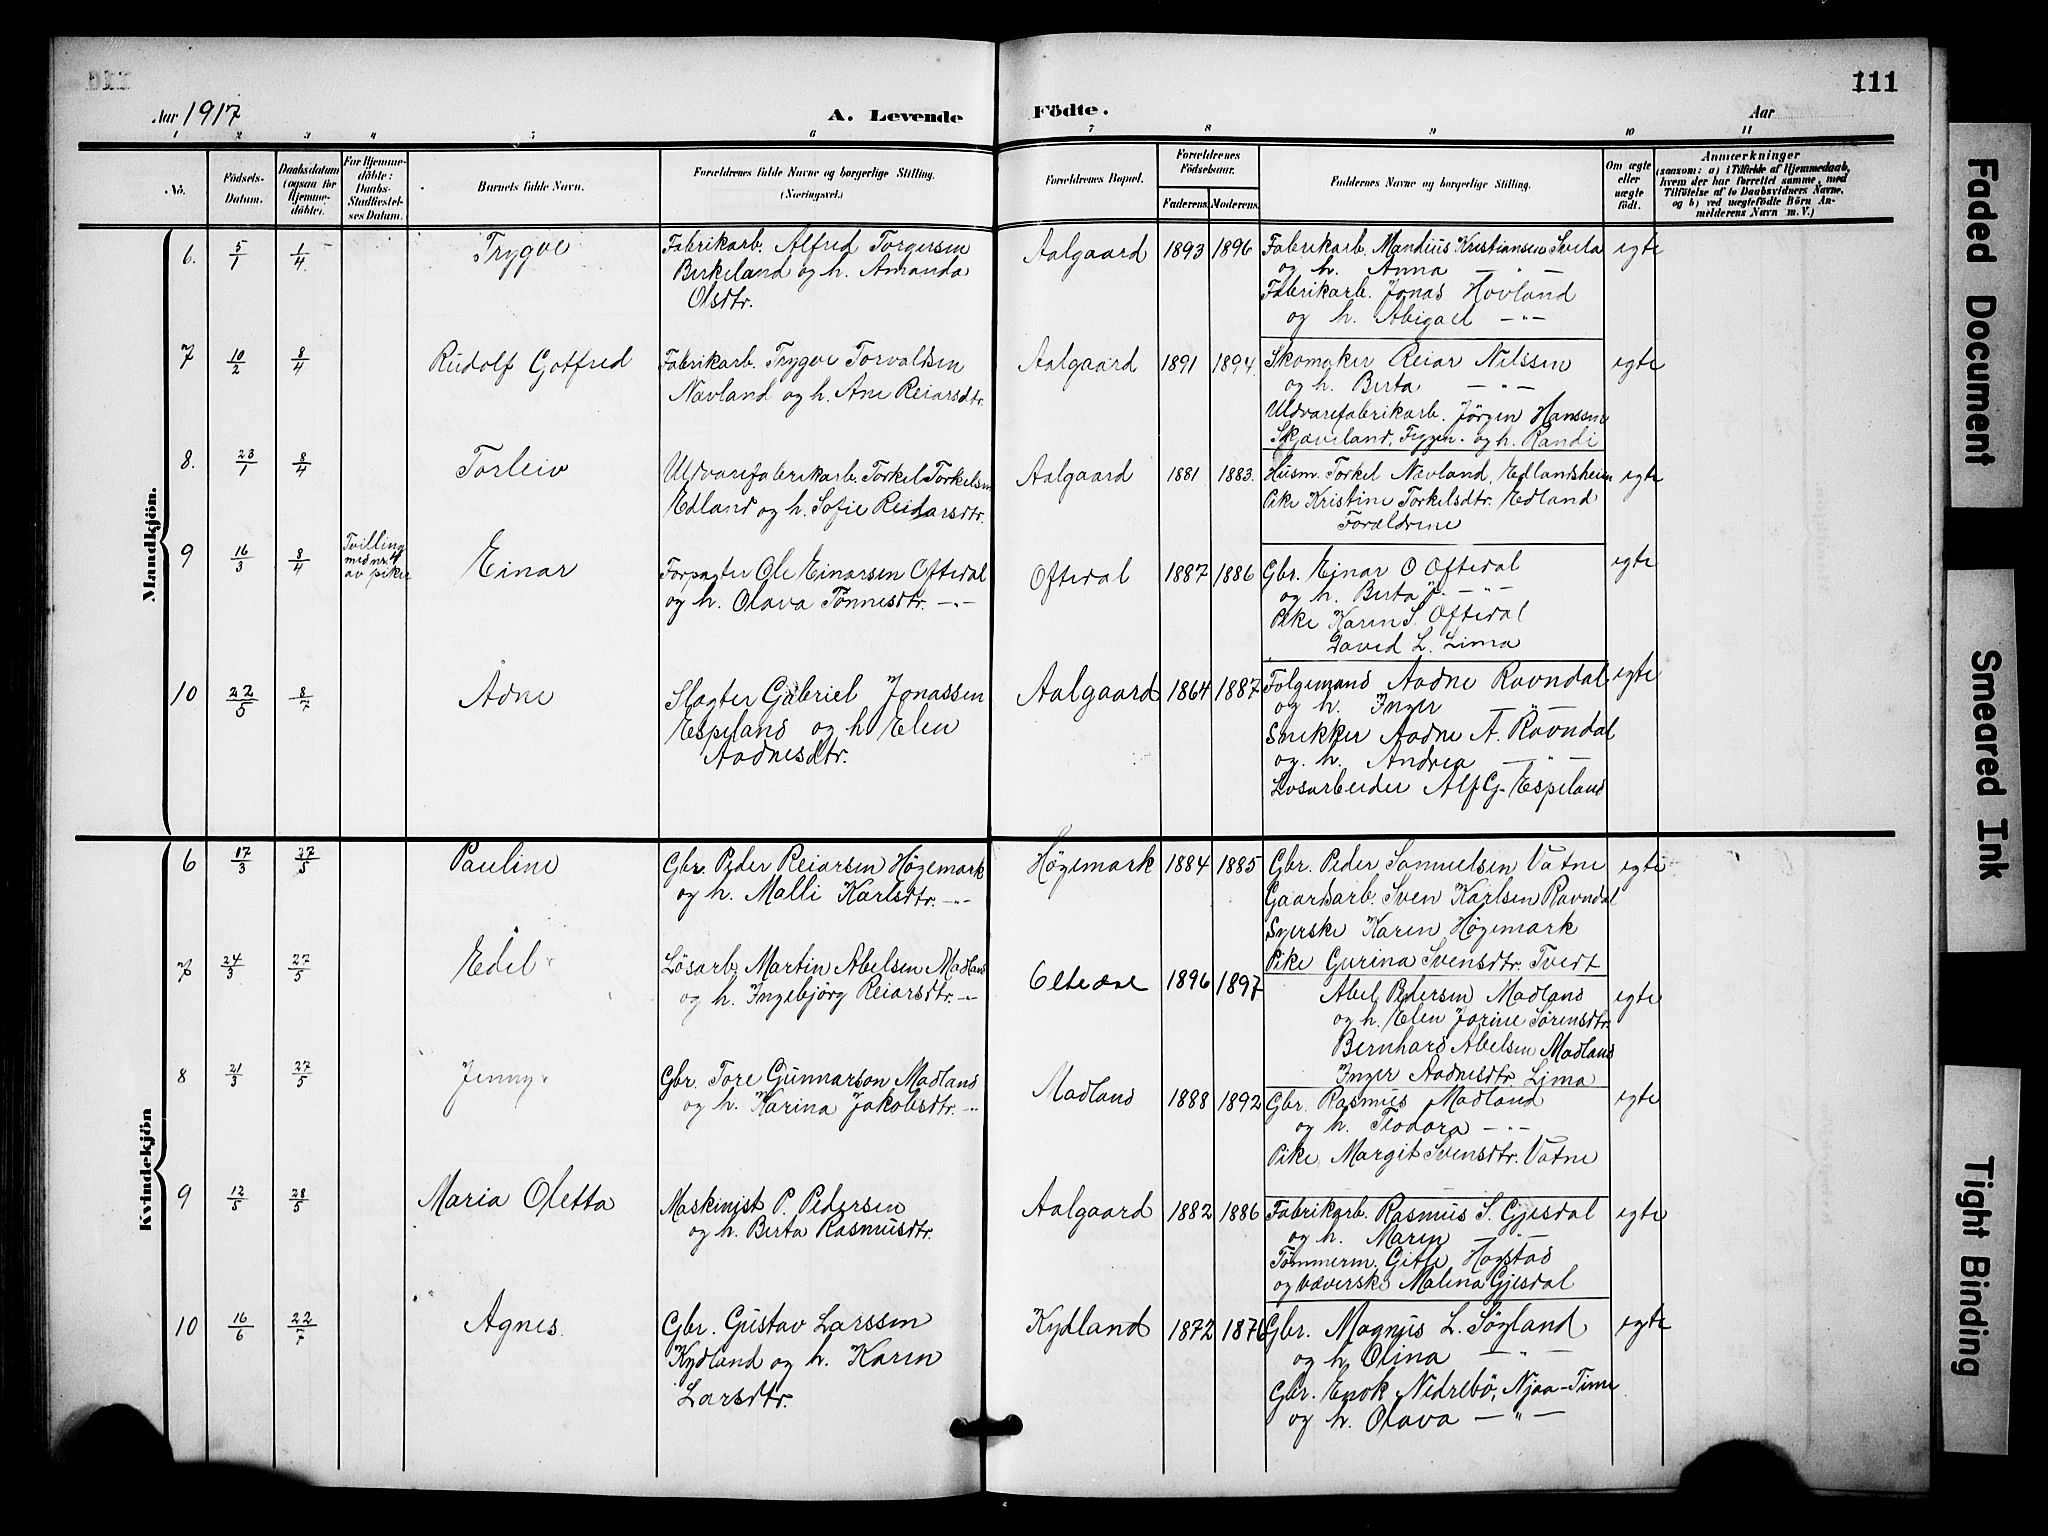 111
Aar 1917
A. Levende Födte.
Aar
1 2 3 4 5 6 7 8 9 10 11
No.
Födsels-Datum.
Daabsdatum (ogsaa for Hjemmedöbte).
For Hjemmedöbte: Daabs-Stadfæstelses Datum.
Barnets fulde Navn.
Forældrenes fulde Navne og borgerlige Stilling. (Næringsvei.)
Forældrenes Bopæl.
Forældrenes Födselsaar.
Faderens. Moderens.
Faddernes Navne og borgerlige Stilling.
Om ægte eller uægte født.
Anmærkninger
(saasom: a) i Tilfælde af Hjemmedaab, hvem der har forrettet samme, med Tilföielse af to Daabsvidners Navne, og b) ved uægtefödte Börn Anmelderens Navn m. V.)
Mandkjön.
6. 5/1 1/4 Trygve
Fabrikarb. Alfred Torgersen
Birkeland og h. Amanda
Olsdtr.
Aalgaard 1893 1896
Fabrikarb. Mandius Kristiansen Svela
og h. Anna — " —
Fabrikarb. Jonas Hovland
og h. Abigael — " —
egte
7 10/2 8/4 Rudolf Gotfred
Fabrikarb. Trygve Torvaldsen
Nævland og h. Ane Reiarsdtr.
Aalgaard 1891 1894.
Skomaker Reiar Nilssen
og h. Berta — " —
Uldvarefabrikarb. Jörgen Hanssen
Skjæveland, Figgen. og h. Randi
egte
8. 23/1 8/4 Torleiv
Uldvarefabrikarb. Torkel Torkelsen
Edland og h. Sofie Reidarsdtr.
Aalgaard 1881 1883.
Husm. Torkel Nævland, Edlandsheien
Pike Kristine Torkelsdtr. Edland
Forældrene
egte
9 16/3 8/4 Tvilling
med nr. 4
av piker
Einar
Forpagter Ole Einarsen Oftedal
og h. Olava Tönnesdtr. — " —
Oftedal 1887 1886
Gbr. Einar O Oftedal
og h. Berta J. — " —
Pike Karen S. Oftedal
David L. Lima
egte
10 22/5 8/7 Adne
Slagter Gabriel Jonassen
Espeland og h Elen
Aadnesdtr.
Aalgaard 1864 1887
Folgemand Aadne Ravndal
og h. Inger — " —
Snekker Aadne A. Ravndal
og. h. Andrea — " —
Løsarbeider Alf G. Espeland
egte
Kvindekjön
6 17/3 27/5 Pauline
Gbr. Peder Reiarsen Høgemark
og h. Malli Karlsdtr. — " —
Høgemark 1884 1885
Gbr. Peder Samuelsen Vatne
Gaardarb. Sven Karlsen Ravndal
Syerske Karen Høgemark
Pike Gurina Svensdtr. Tvedt
egte
7 24/3 27/5 Edel
Løsarb. Martin Abelsen Madland
og h. Ingebjörg Reiarsdtr. — " —
Oltedal 1896 1897
Abel Pedersen Madland
og h. Elen Jorine Sørensdtr.
Bernhard Abelsen Madland
Inger Aadnesdtr Lima
egte
8 21/3 27/5 Jenny
Gbr. Tore Gunnarson Madland
og h. Karina Jakobsdtr. — " —
Madland 1888 1892
Gbr. Rasmus Madland
og h. Teodora — " —
Pike Margit Svensdtr. Vatne
egte
9 12/5 28/5 Maria Oletta
Maskinist P. Pedersen
og h. Berta Rasmusdtr.
Aalgaard 1882 1886
Fabrikarb. Rasmus S. Gjesdal
og h. Maren — " —
Tømmerm. Gitle Hogstad
og Væverske Malena Gjesdal
egte
10 16/6 22/7 Agnes.
Gbr. Gustav Larssen
Kydland og h. Karen
Larsdtr.
Kydland 1872 1876
Gbr. Magnus L. Søyland
og h. Olina — " —
Gbr. Enok Nedrebö, Njaa-Time
og h. Olava — " —
egte
Faded Document
Smeared Ink
Tight Binding